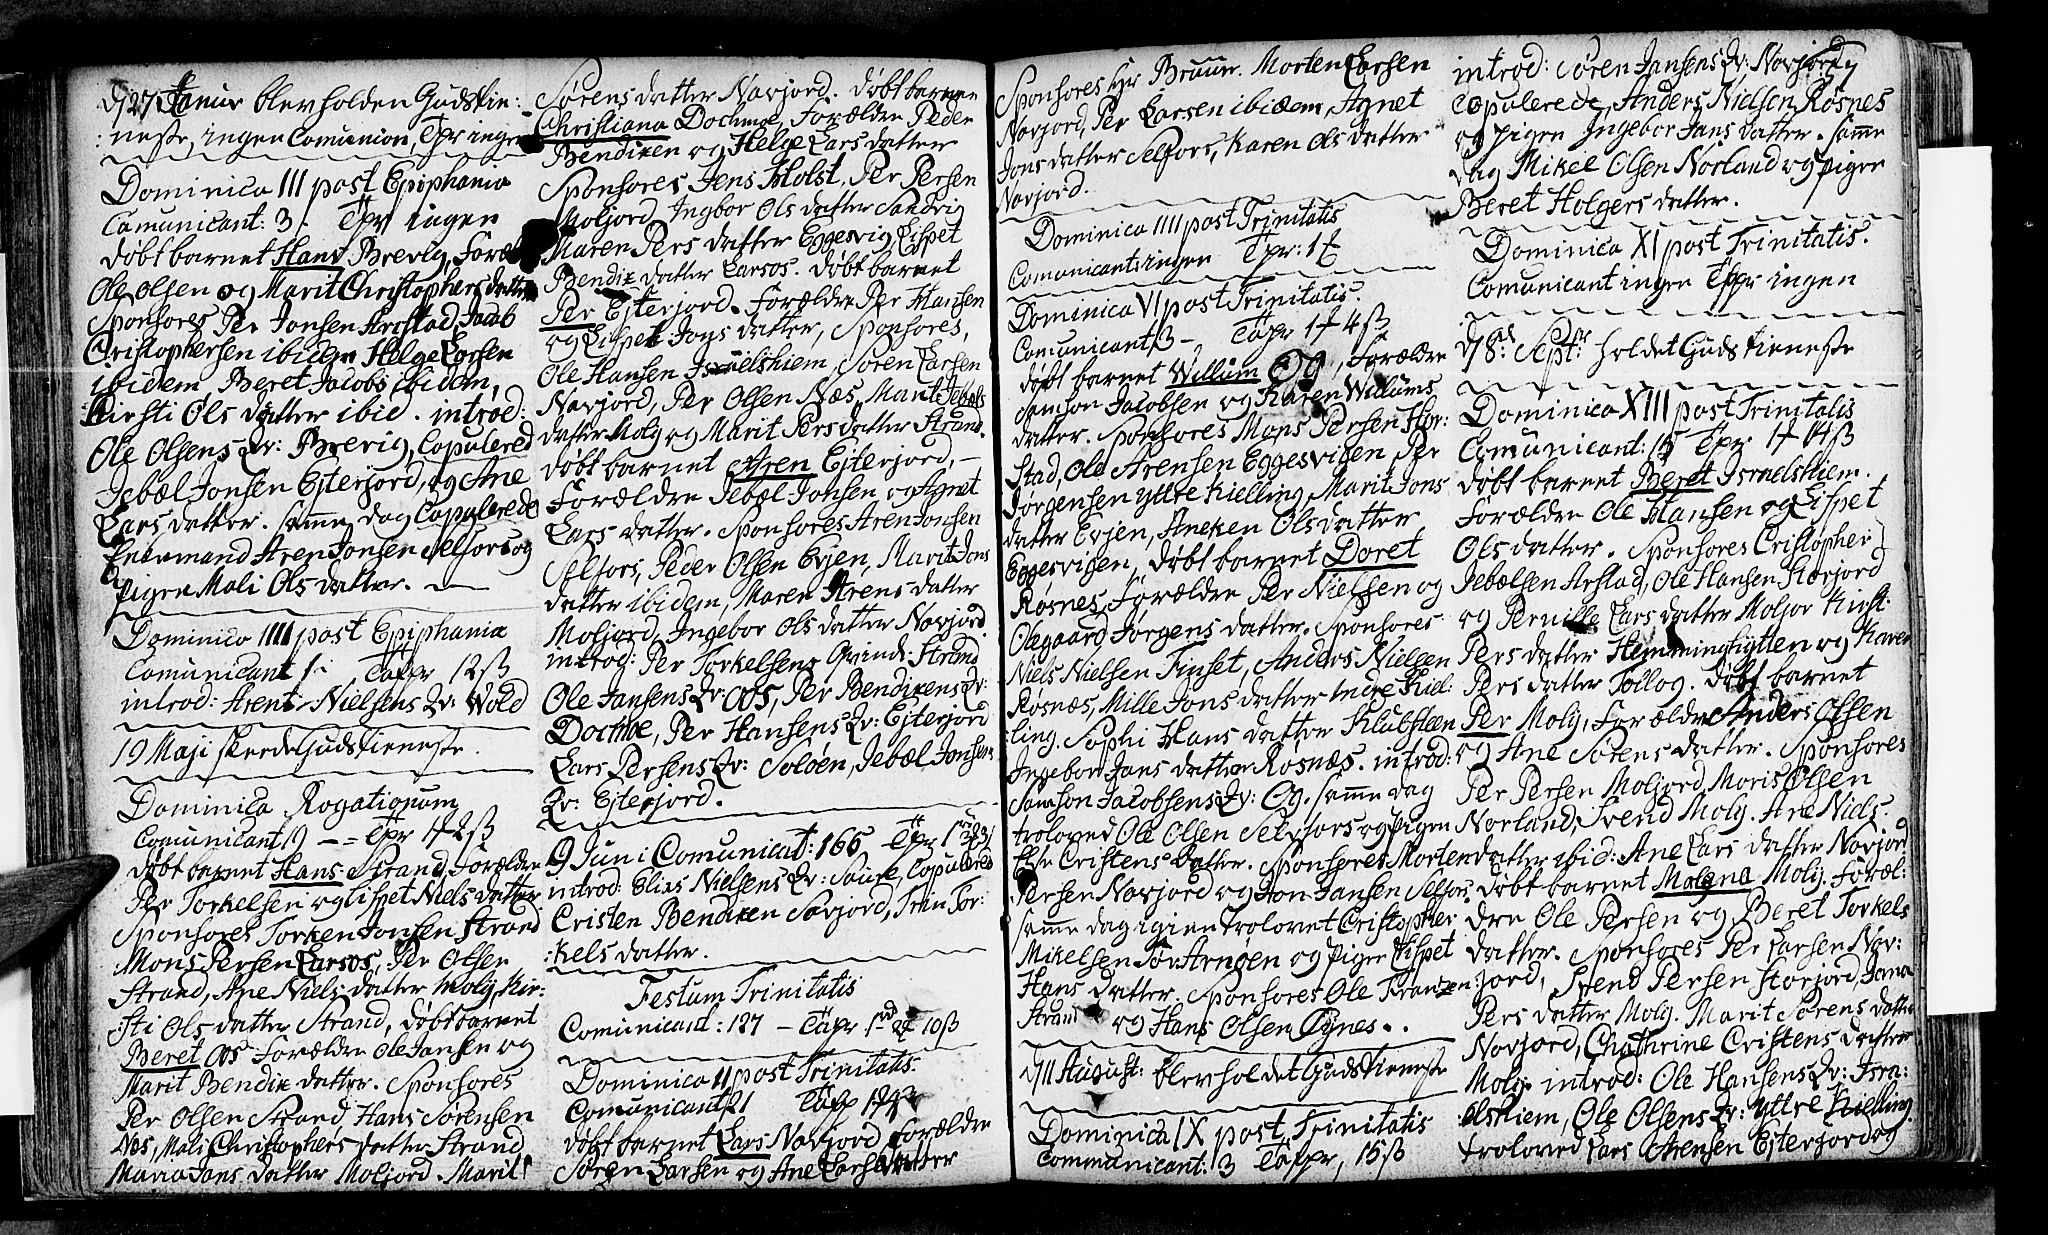 d 27 Januar blev holden Gudstie:
:neste, ingen Comunion, Tpr ingen
Dominica III post Epiphania
Comunicant: 3 - Tpr ingen
døbt barnet Hans Brevig, Foræl
Ole Olsen og Marit Christophersdatter
Sponsores Per Jonsen Arstad, Jacob
Cristophersen ibidem Helge Larsen
ibidem, Beret Jacobs ibidem,
Kirsti Ols datter ibid. introd:
Ole Olsens Qv: Brevig, Copulered
Jebæl Jonsen Ejterjord, og Ane
Lars datter. samme dag Copulerede
Enkemand Aren Jonsen Selfors og
pigen Mali Ols datter.
Dominica IIII post Epiphania
Comunicant 1: Tapr 12 ß
introd: Arent Nielsens Qv: Wold
19 Maji skeede Guds tieneste.
Dominica Rogationum
Comunicant 19 - = Tpr 1 4 2 ß
døbt barnet Hans Strand, Forældre
Per Torkelsen og Lispet Niels datter
Sponsores Torken Jonsen Strand
Mons Persen Larsos, Per Olsen
Strand, Ane Niels datter Molig, Kir:
:sti Ols datter Strand, døbt barnet
Beret Oos Forældre Ole Jansen og
Marit Bendix datter. Sponsores
Per Olsen Strand, Hans Sørensen
Næs, Mali Christophers datter Strand,
Maria Jans datter Moljord. Marit
Sørens datter Navjord. døbt barnet
Christiana Dochmoe, Forældre Peder
Bendixen og Helge Lars datter
Sponsores Jens Holst, Per Persen
Moljord, Ingbor Ols datter Sandvig
Maren Pers datter Eggesvig, Lispet
Bendix datter Larsos. døbt barnet
Per Ejterjord. Forældre Per Hansen
og Lispet Jons datter, Sponsores,
Ole Hansen Israelshiem, Søren Larsen
Navjord, Per Olsen Næs, Marit Jebæls
datter Molig og Marit Pers datter Strand.
døbt barnet Aren Ejterjord, -
Forældre Jebæl Jonsen, og Agnet
Lars datter. Sponsores Aren Jonsen
Selfors, Peder Olsen Evjen, Marit Jons
datter ibidem, Maren Arens datter
Moljord, Ingebor Ols datter Navjord.
introd: Per Torkelsens Qvinde: Strand
Ole Jansens Qv: Oos, Per Bendixens Qv:
Dochmoe, Per Hansens Qv: Ejterjord
Lars Persens Qv: Soløen, Jebæl Jonsens
Qv: Ejterjord.
9 Juni Comunicant: 166 - Tpr 1
introd: Elias Nielsens Qv: Saure, Copulered
Cristen Bendixen Savjord, Trin Tor:
:kels datter.
Festum Trinitatis
Comunicant: 127 - Tapr 1 rd 24 10 ß
Dominica II post Trinitatis.
Comunicant 21 Tapr
døbt barnet Lars Navjord Forældre
Søren Larsen og Ane Lars datter
Sponsores Hr Bruun. Morten Larsen
Navjord, Per Larsen ibidem, Agnet
Jons datter Selfors, Karen Ols datter
Navjord.
Dominica IIII post Trinitatis
Comunicants ingen Tpr: 1
Dominica VI post Trinitatis.
Comunicant 3 - Tapr 1 4 4 ß
døbt barnet Willum Og, Forældre
Samson Jacobsen og Karen Willums
datter. Sponsores Mons Persen Stor:
Stad, Ole Arensen Eggesvigen Per
Jørgensen yttre Kielling, Marit Jons
datter Evjen, Aneken Ols datter
Eggesvigen, døbt barnet Doret
Røsnes, Forældre Per Nielsen og
Olegaard Jørgens datter. Sponsores
Niels Nielsen Finset, Anders Nielsen
Røsnæs, Mille Jons datter Indre Kiel:
:ling. Sophi Hans datter Klubsteen
Ingebor Jans datter Røsnæs. introd:
Samson Jacobsens Qv: Og. samme dag
troloved Ole Olsen Selvfors og pigen
Else Cristens datter. Sponsores Morten
Persen Navjord og Jon Jansen Selfors.
samme dag igien trolovet Cristopher
Mikelsen Sør Arnøen og Piger Lispet
Hans datter. Sponsores Ole Frantzen
Strand og Hans Olsen Ognes..
d 11 August: blev holdet Guds tieneste
Dominica IX post Trinitatis
Communicant: 3 Tapr, 15 ß
introd: Søren Jansens Qv: Navjord,
Copulerede, Anders Nielsen Røsnes
og pigen Ingebor Jans datter. samme
dag Mikel Olsen Norland og piger
Beret Holgers datter.
Dominica XI post Trinitatis.
Comunicant ingen Tapr ingen
d 8de Septr: holdet Guds tieneste
Dominica XIII post Trinitatis
Comunicant: 15 Tpr 1 4 14 ß
døbt barnet Beret Israelshiem.
Forældre Ole Hansen og Lispet
Ols datter. Sponsores Cristopher
Jebælsen Arstad, Ole Hansen Storjord
og Pernille Lars datter Moljor Kirst:
Pers datter Hemminghytten og Karen
Pers datter Tollog. døbt barnet
Per Molig, Forældre Anders Olsen
og Ane Sørens datter. Sponsores
Per Persen Moljord, Moris Olsen
Norland, Svend Molig. Ane Niels.
datter ibid: Ane Lars datter Navjord
døbt barnet Malena Molig. Foræl:
dre Ole Persen og Beret Torkels
datter. Sponsores Per Larsen Nav:
:jord, Svend Persen Storjord,
Pers datter Molig. Marit Sørens datter
Navjord, Chathrine Cristens datter
Molig. introd: Ole Hansens Qv: Isra:
elshiem, Ole Olsens Qv: yttre Kielling.
troloved Lars Arensen Ejterjord og